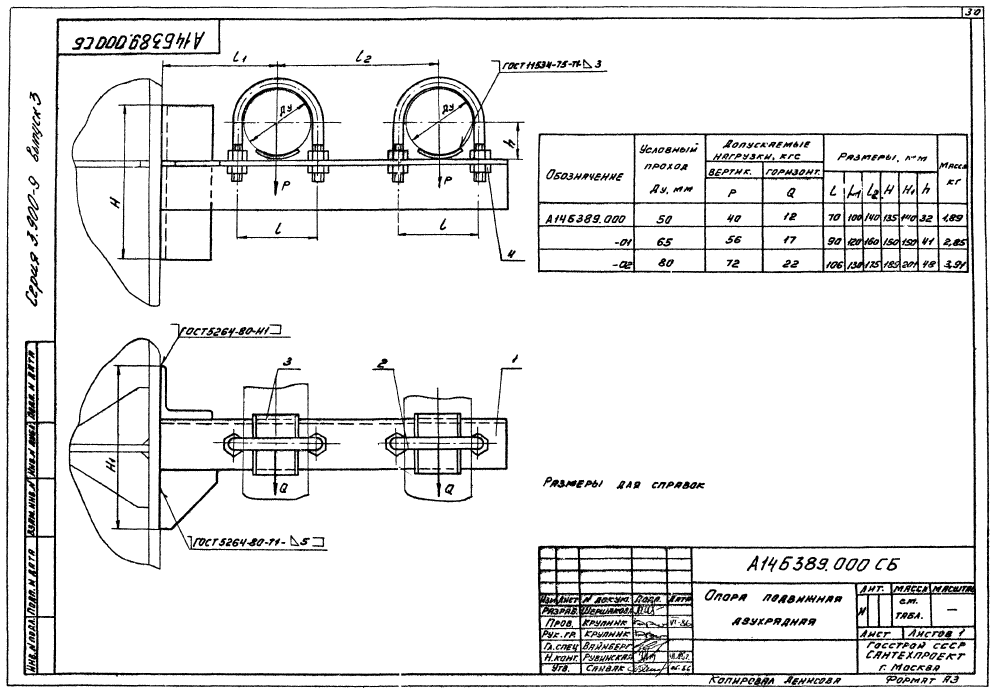 30
А14Б389.000 СБ
Серия 3.900-9 Выпуск 3
L1
L2
ГОСТ 11534-75-Т1-◺3
ДУ
ДУ
h
H
P
P
L
L
4
Обозначение
Условный проход Ду, мм
Допускаемые нагрузки, кгс
Размеры, мм
Масса кг
вертик.
горизонт.
P
Q
L
L1
L2
H
H1
h
А14Б389.000 50 40 12 70 100 140 135 140 32 1,89
-01 65 56 17 90 120 160 150 150 41 2,85
-02 80 72 22 106 130 175 185 201 48 3,91
ГОСТ 5264-80-Н1
3
2
1
H1
Q
Q
ГОСТ 5264-80-Т1-◺5
Размеры для справок
Инв.№ подл.
Подп. и дата
Взам. инв.№
Инв.№ дубл.
Подп. и дата
А14Б389.000 СБ
Изм Лист № докум. Подп. Дата
Разраб.
Пров. Крупник
Рук. гр. Крупник
Гл. спец. Вайнберг
Н. конт. Рувинская
Утв.
Опора подвижная
двухрядная
Лит. Масса Масштаб
И
см. табл.
—
Лист Листов 1
Госстрой СССР
Сантехпроект
г. Москва
Копировал Денисова Формат А3